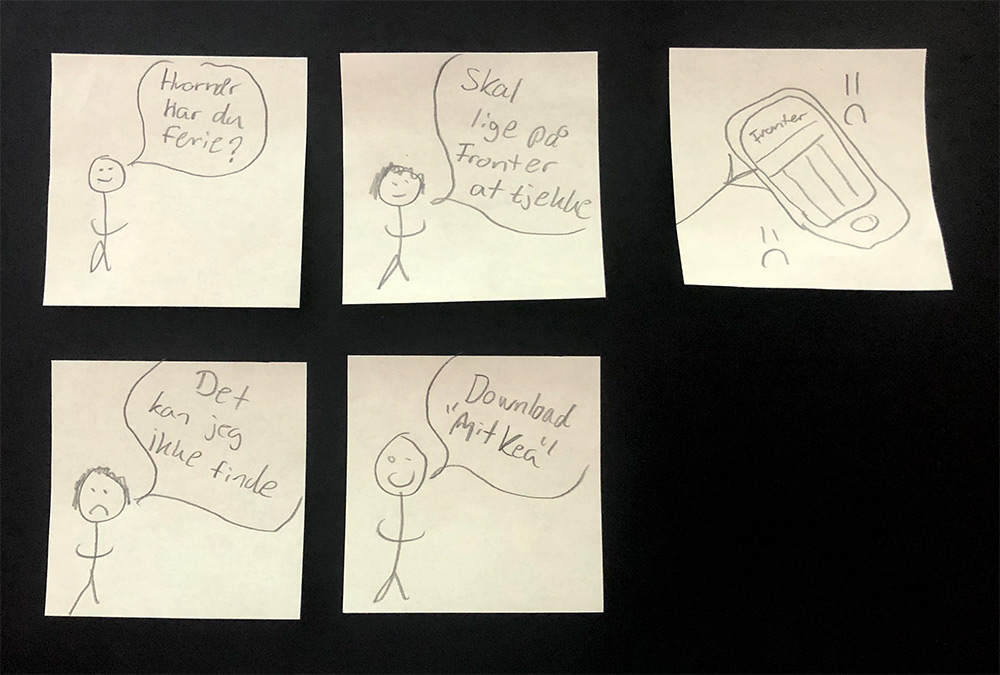 Hvornår
har du
ferie?
Skal
lige på
Fronter
at tjekke
Fronter
Det
kan jeg
ikke finde
Download
"Mit Kea"